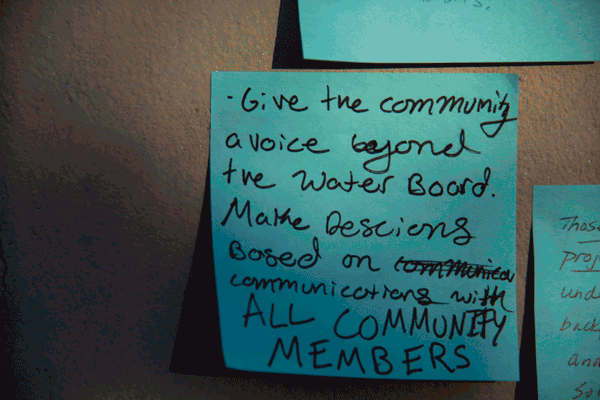 - Give the community
a voice beyond
the Water Board.
Make Descions
Based on communicat
communications with
ALL COMMUNITY
MEMBERS
Those
proj
unde
back
and